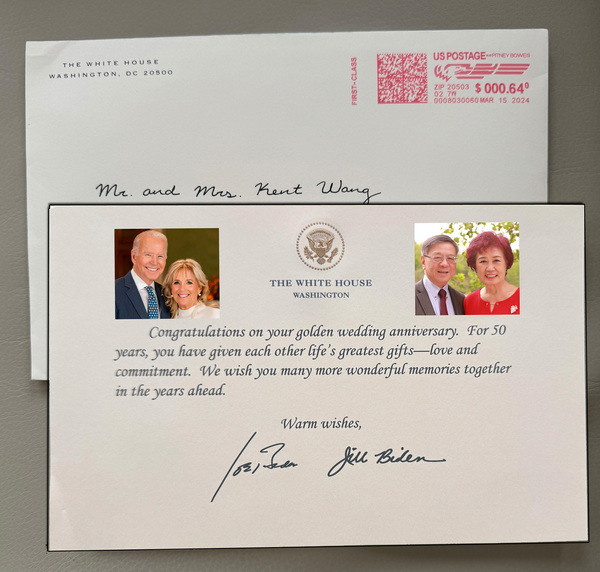 THE WHITE HOUSE
WASHINGTON, DC 20500
FIRST-CLASS
US POSTAGE PITNEY BOWES
ZIP 20503 $ 000.64⁰
02 7W
0008030060 MAR 15 2024
Mr. and Mrs. Kent Wang
THE WHITE HOUSE
WASHINGTON
Congratulations on your golden wedding anniversary. For 50
years, you have given each other life's greatest gifts—love and
commitment. We wish you many more wonderful memories together
in the years ahead.
Warm wishes,
Joe Biden Jill Biden